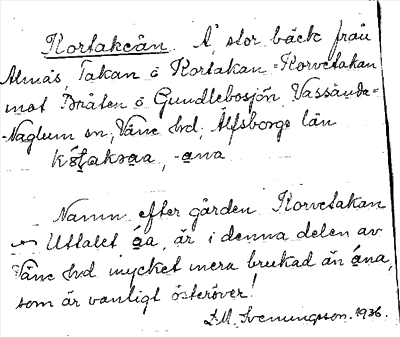 Kortakeån. Å, stor bäck från
Almås, Takan o Kortakan = Korvetakan
mot Bråten o Gundlebosjön, Vassända-
-Naglum sn, Väne hd, Älfsborgs län
-ana
Namn efter gården Korvetakan
Uttalet åa, är i denna delen av
Väne hd mycket mera brukad än åna,
som är vanligt österöver!
D.M. Svenungsson. 1936.